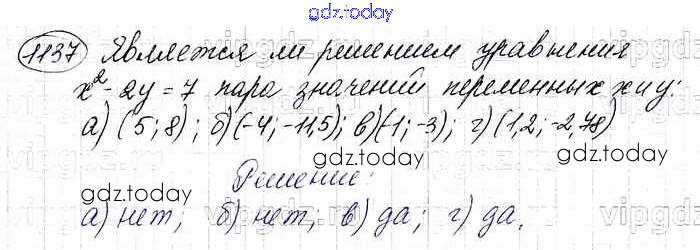 gdz.today
1137 Является ли решением уравнения
x²-2y=7 пара значений переменных x и y:
а) (5; 8); б) (-4; -11,5); в) (-1; -3); г) (1,2; -2,78)
gdz.today gdz.today
Решение:
gdz.today
а) нет; б) нет; в) да; г) да.